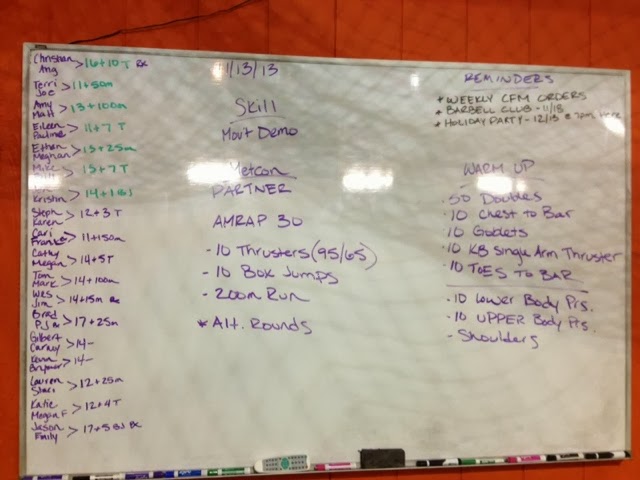 Christian
Ang > 16+10 T Rx
Terri
Joe > 11+50m
Amy
Matt > 13+100m
Eileen
Pauline > 11+7 T
Ethan
Meghan > 13+25m
Mike > 13+7 T
Kristin > 14+1 BJ
Steph
Karen > 12+3 T
Cari
Frank > 11+150m
Cathy
Megan > 14+5T
Tom
Mark > 14+100m
Wes
Jim > 14+15m Rx
Brad
PJ > 17+25m
Gilbert
> 14-
Kevin
> 14-
Lauren
Staci > 12+25m
Katie
Megan F > 12+4 T
Jason
Emily > 17+5 BJ Rx
11/13/13
Skill
Mvmt Demo
Metcon
PARTNER
AMRAP 30
- 10 Thrusters (95/65)
- 10 Box Jumps
- 200m Run
* Alt. Rounds
REMINDERS
* WEEKLY CFM ORDERS
* BARBELL CLUB - 11/18
* HOLIDAY PARTY - 12/13 @ 7pm Here
WARM UP
. 50 Doubles
. 10 Chest to Bar
. 10 Goblets
. 10 KB Single Arm Thruster
. 10 TOES TO BAR
. 10 Lower Body Prs.
. 10 UPPER Body Prs.
- Shoulders